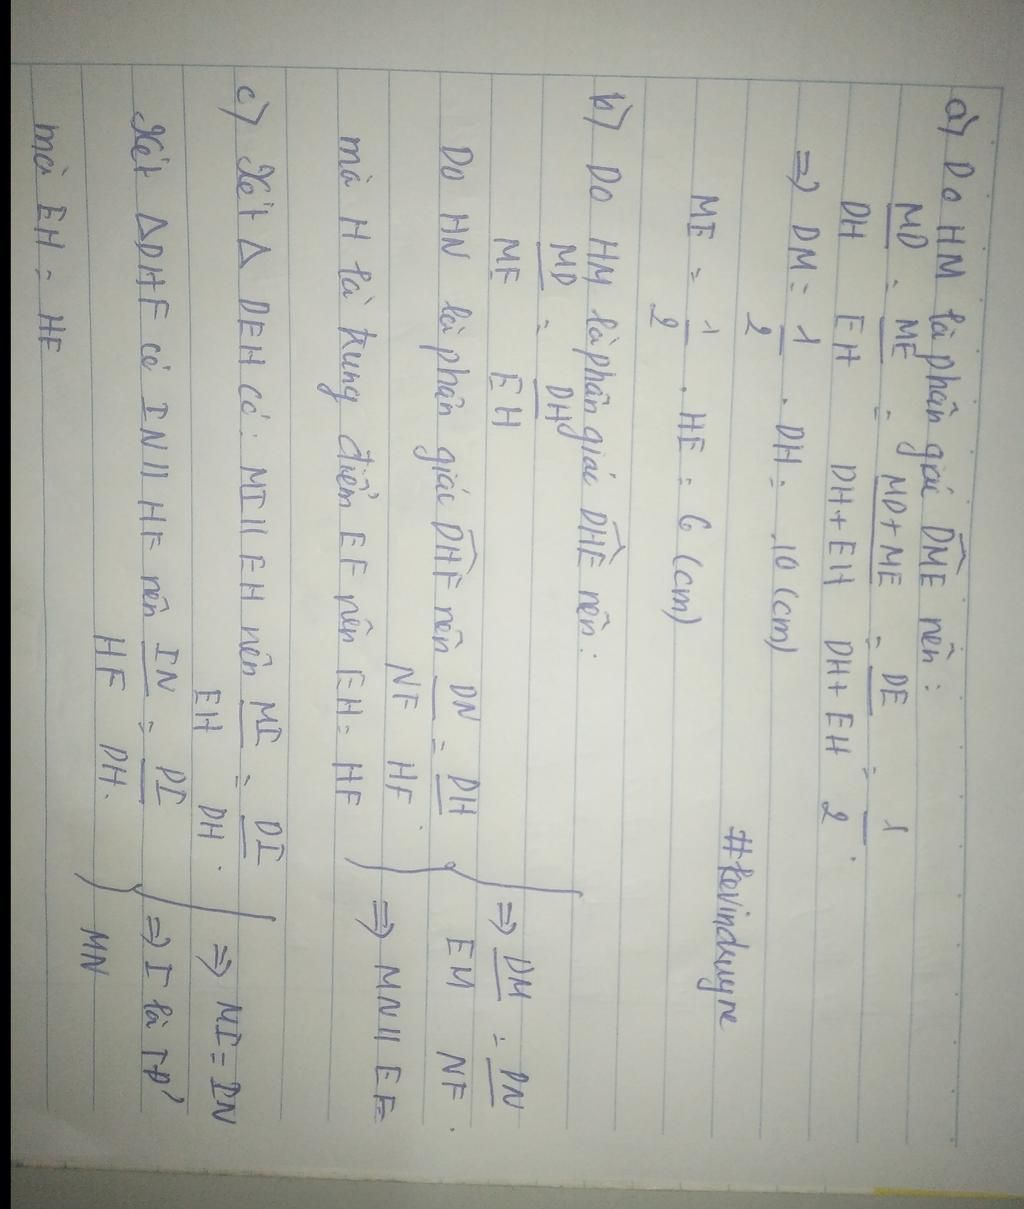 a) Do HM là phân giác DME nên:
MD/DH = ME/EH = MD+ME/DH+EH = DE/DH+EH = 1/2.
=> DM = 1/2 . DH = 10 (cm)
ME = 1/2 . HE = 6 (cm)
#kevinduyne
b) Do HM là phân giác DHE nên:
MD/ME = DH/EH
Do HN là phân giác DHF nên DN/NF = DH/HF.
=> DM/EM = DN/NF.
mà H là trung điểm EF nên EH = HF
=> MN || EF
c) Xét Δ DEH có: MI || EH nên MI/EH = DI/DH.
Xét ΔDHF có IN || HF nên IN/HF = DI/DH.
mà EH = HF
=> MI = IN
=> I là TĐ
MN